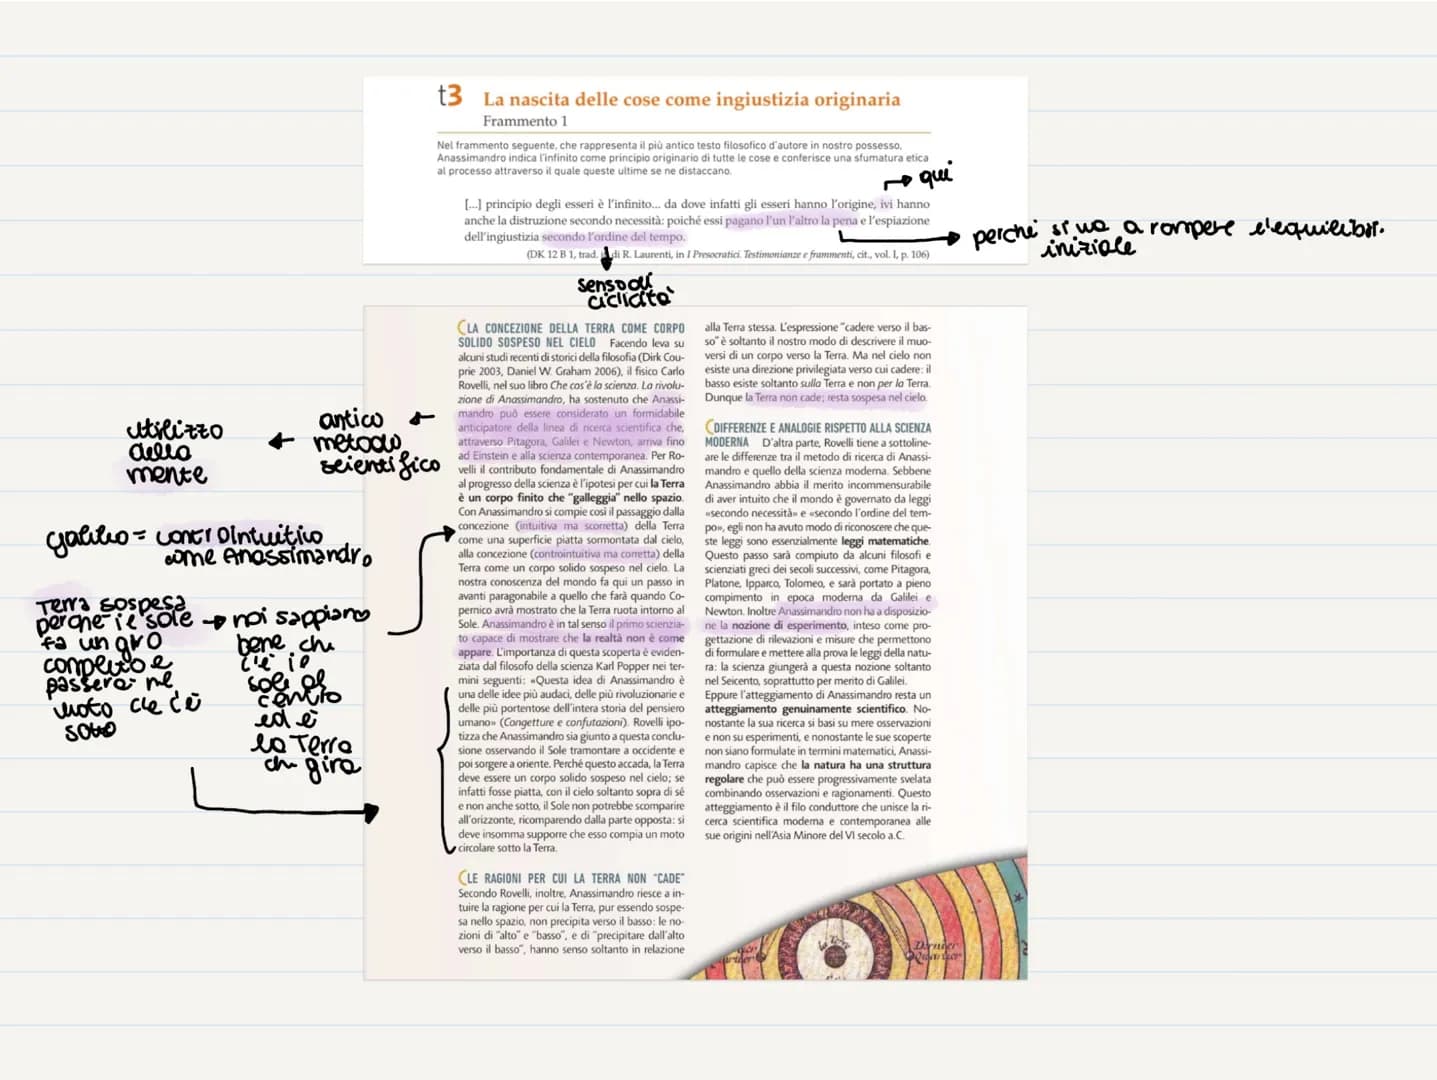 t3 La nascita delle cose come ingiustizia originaria
Frammento 1
Nel frammento seguente, che rappresenta il più antico testo filosofico d'autore in nostro possesso,
Anassimandro indica l'infinito come principio originario di tutte le cose e conferisce una sfumatura etica
al processo attraverso il quale queste ultime se ne distaccano.
→ qui
[...] principio degli esseri è l'infinito... da dove infatti gli esseri hanno l'origine, ivi hanno
anche la distruzione secondo necessità: poiché essi pagano l'un l'altro la pena e l'espiazione
dell'ingiustizia secondo l'ordine del tempo.
perché si va a rompere l'equilibr.
iniziale
(DK 12 B 1, trad. di R. Laurenti, in I Presocratici. Testimonianze e frammenti, cit., vol. I, p. 106)
senso di
ciclicità
LA CONCEZIONE DELLA TERRA COME CORPO
SOLIDO SOSPESO NEL CIELO Facendo leva su
alcuni studi recenti di storici della filosofia (Dirk Cou-
prie 2003, Daniel W. Graham 2006), il fisico Carlo
Rovelli, nel suo libro Che cos'è la scienza. La rivolu-
zione di Anassimandro, ha sostenuto che Anassi-
mandro può essere considerato un formidabile
anticipatore della linea di ricerca scientifica che,
attraverso Pitagora, Galilei e Newton, arriva fino
ad Einstein e alla scienza contemporanea. Per Ro-
velli il contributo fondamentale di Anassimandro
al progresso della scienza è l'ipotesi per cui la Terra
è un corpo finito che "galleggia" nello spazio.
Con Anassimandro si compie così il passaggio dalla
concezione (intuitiva ma scorretta) della Terra
come una superficie piatta sormontata dal cielo,
alla concezione (controintuitiva ma corretta) della
Terra come un corpo solido sospeso nel cielo. La
nostra conoscenza del mondo fa qui un passo in
avanti paragonabile a quello che farà quando Co-
pernico avrà mostrato che la Terra ruota intorno al
Sole. Anassimandro è in tal senso il primo scienzia-
to capace di mostrare che la realtà non è come
appare. L'importanza di questa scoperta è eviden-
ziata dal filosofo della scienza Karl Popper nei ter-
mini seguenti: «Questa idea di Anassimandro è
una delle idee più audaci, delle più rivoluzionarie e
delle più portentose dell'intera storia del pensiero
umano» (Congetture e confutazioni). Rovelli ipo-
tizza che Anassimandro sia giunto a questa conclu-
sione osservando il Sole tramontare a occidente e
poi sorgere a oriente. Perché questo accada, la Terra
deve essere un corpo solido sospeso nel cielo; se
infatti fosse piatta, con il cielo soltanto sopra di sé
e non anche sotto, il Sole non potrebbe scomparire
all'orizzonte, ricomparendo dalla parte opposta: si
deve insomma supporre che esso compia un moto
circolare sotto la Terra.
LE RAGIONI PER CUI LA TERRA NON "CADE"
Secondo Rovelli, inoltre, Anassimandro riesce a in-
tuire la ragione per cui la Terra, pur essendo sospe-
sa nello spazio, non precipita verso il basso: le no-
zioni di "alto" e "basso", e di "precipitare dall'alto
verso il basso", hanno senso soltanto in relazione
alla Terra stessa. L'espressione "cadere verso il bas-
so" è soltanto il nostro modo di descrivere il muo-
versi di un corpo verso la Terra. Ma nel cielo non
esiste una direzione privilegiata verso cui cadere: il
basso esiste soltanto sulla Terra e non per la Terra.
Dunque la Terra non cade; resta sospesa nel cielo.
DIFFERENZE E ANALOGIE RISPETTO ALLA SCIENZA
MODERNA D'altra parte, Rovelli tiene a sottoline-
are le differenze tra il metodo di ricerca di Anassi-
mandro e quello della scienza moderna. Sebbene
Anassimandro abbia il merito incommensurabile
di aver intuito che il mondo è governato da leggi
«secondo necessità» e «secondo l'ordine del tem-
po», egli non ha avuto modo di riconoscere che que-
ste leggi sono essenzialmente leggi matematiche.
Questo passo sarà compiuto da alcuni filosofi e
scienziati greci dei secoli successivi, come Pitagora,
Platone, Ipparco, Tolomeo, e sarà portato a pieno
compimento in epoca moderna da Galilei e
Newton. Inoltre Anassimandro non ha a disposizio-
ne la nozione di esperimento, inteso come pro-
gettazione di rilevazioni e misure che permettono
di formulare e mettere alla prova le leggi della natu-
ra: la scienza giungerà a questa nozione soltanto
nel Seicento, soprattutto per merito di Galilei.
Eppure l'atteggiamento di Anassimandro resta un
atteggiamento genuinamente scientifico. No-
nostante la sua ricerca si basi su mere osservazioni
e non su esperimenti, e nonostante le sue scoperte
non siano formulate in termini matematici, Anassi-
mandro capisce che la natura ha una struttura
regolare che può essere progressivamente svelata
combinando osservazioni e ragionamenti. Questo
atteggiamento è il filo conduttore che unisce la ri-
cerca scientifica moderna e contemporanea alle
sue origini nell'Asia Minore del VI secolo a.C.
antico
metodo
scientifico
utilizzo
della
mente
galileo = controintuitivo
come Anassimandro
Terra sospesa
perché il sole
fa un giro
completo e
passerà nel
vuoto che c'è
sotto
→ noi sappiamo
bene che
c'è il
sole al
centro
ed è
la Terra
che gira
la Terre
Dernier
Quartier